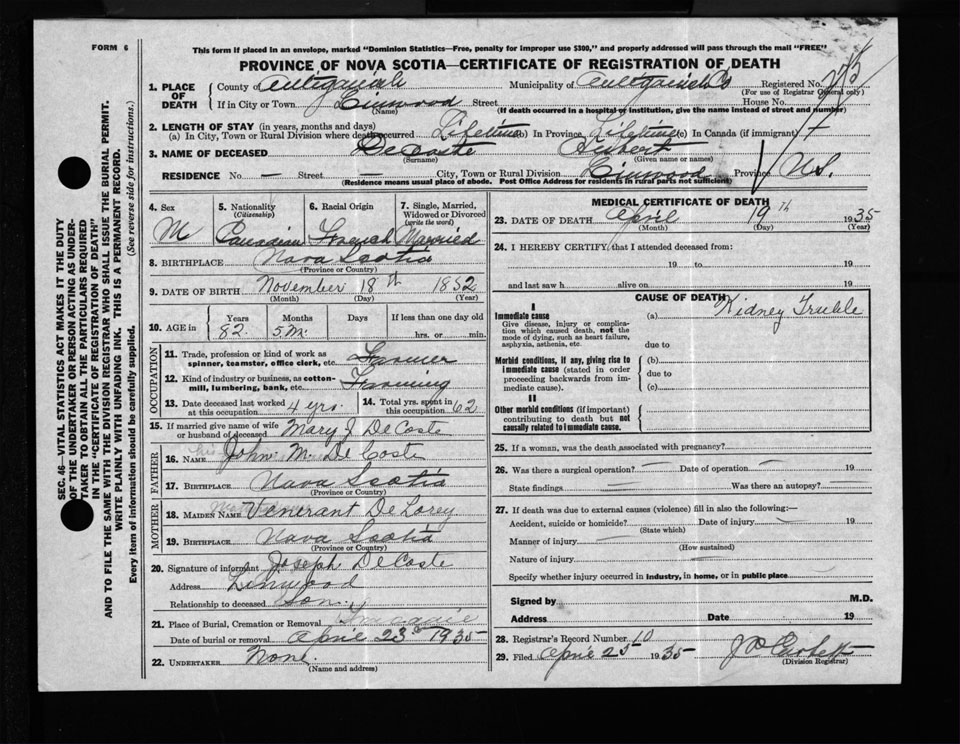 FORM 6
This form if placed in an envelope, marked "Dominion Statistics—Free, penalty for improper use $300," and properly addressed will pass through the mail "FREE"
PROVINCE OF NOVA SCOTIA—CERTIFICATE OF REGISTRATION OF DEATH
1. PLACE OF DEATH { County of Antigonish Municipality of Antigonish Co Registered No.
(For use of Registrar General only)
If in City or Town Linwood Street House No.
(Name) (If death occurred in a hospital or institution, give the name instead of street and number)
2. LENGTH OF STAY (in years, months and days)
(a) In City, Town or Rural Division where death occurred Lifetime (b) In Province Lifetime (c) In Canada (if immigrant) —
3. NAME OF DECEASED DeCoste Hubert
(Surname) (Given name or names)
RESIDENCE No. — Street — City, Town or Rural Division Linwood Province N.S.
(Residence means usual place of abode. Post Office Address for residents in rural parts not sufficient)
4. Sex 5. Nationality 6. Racial Origin 7. Single, Married,
(Citizenship) Widowed or Divorced
(write the word)
M Canadian French Married
8. BIRTHPLACE Nova Scotia
(Province or Country)
9. DATE OF BIRTH November 18th 1852
(Month) (Day) (Year)
10. AGE in { Years Months Days If less than one day old
82 5 m. hrs. or min.
OCCUPATION
11. Trade, profession or kind of work as
spinner, teamster, office clerk, etc. Farmer
12. Kind of industry or business, as cotton-
mill, lumbering, bank, etc. Farming
13. Date deceased last worked
at this occupation 4 yrs. 14. Total yrs. spent in
this occupation 62
15. If married give name of wife
or husband of deceased Mary J DeCoste
FATHER
16. Name John M. DeCoste
17. Birthplace Nova Scotia
(Province or Country)
MOTHER
18. Maiden Name Venerant DeLorey
19. Birthplace Nova Scotia
(Province or Country)
20. Signature of informant Joseph DeCoste
Address Linwood
Relationship to deceased Son.
21. Place of Burial, Cremation or Removal
Date of burial or removal April 23rd 1935
22. UNDERTAKER None
(Name and address)
MEDICAL CERTIFICATE OF DEATH
23. DATE OF DEATH April 19th 1935
(Month) (Day) (Year)
24. I HEREBY CERTIFY that I attended deceased from:
19 to 19
and last saw h alive on 19
CAUSE OF DEATH
I
Immediate cause (a) Kidney Truble
Give disease, injury or complica-
tion which caused death, not the
mode of dying, such as heart failure,
asphyxia, asthenia, etc. due to
Morbid conditions, if any, giving rise to (b)
immediate cause (stated in order due to
proceeding backwards from im-
mediate cause). (c)
II
Other morbid conditions (if important)
contributing to death but not
causally related to immediate cause.
25. If a woman, was the death associated with pregnancy?
26. Was there a surgical operation? — Date of operation — 19
State findings — Was there an autopsy? —
27. If death was due to external causes (violence) fill in also the following:—
Accident, suicide or homicide? Date of injury 19
(State which)
Manner of injury —
(How sustained)
Nature of injury —
Specify whether injury occurred in industry, in home, or in public place
Signed by M.D.
Address Date 19
28. Registrar's Record Number 10
29. Filed April 25 1935
(Division Registrar)
SEC. 46—VITAL STATISTICS ACT MAKES IT THE DUTY
OF THE UNDERTAKER OR PERSON ACTING AS UNDER-
TAKER TO OBTAIN ALL THE PARTICULARS REQUIRED
IN THE "CERTIFICATE OF REGISTRATION OF DEATH"
AND TO FILE THE SAME WITH THE DIVISION REGISTRAR WHO SHALL ISSUE THE BURIAL PERMIT.
WRITE PLAINLY WITH UNFADING INK. THIS IS A PERMANENT RECORD.
Every item of information should be carefully supplied. (See reverse side for instructions.)